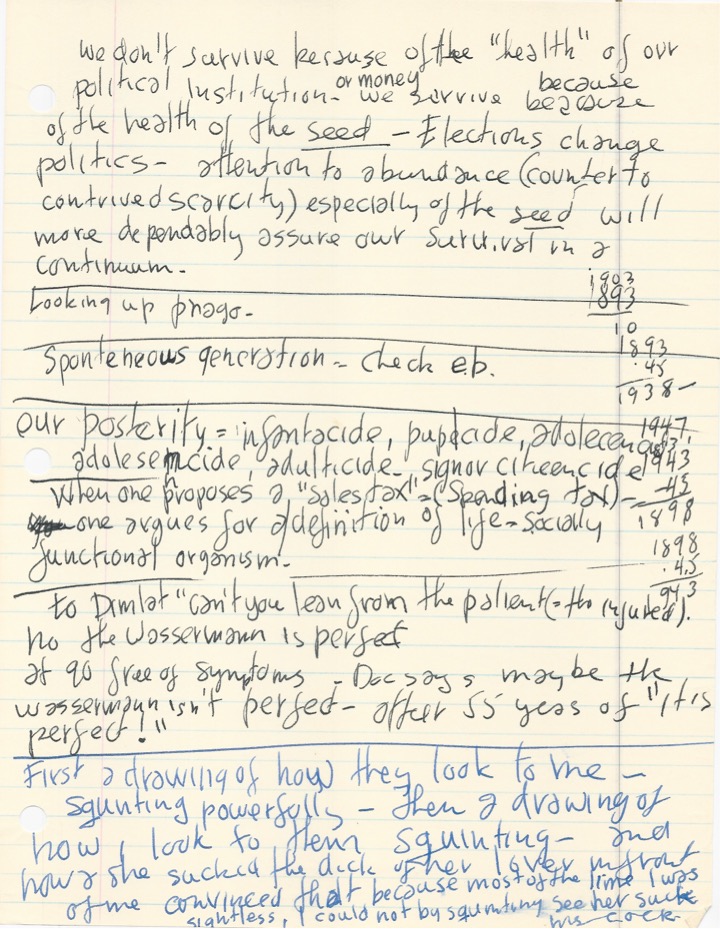 we don't survive because of the "health" of our
political Institution - we survive because
or money
because
of the health of the seed - Elections change
politics - attention to abundance (counter to
contrived scarcity) especially of the seed will
more dependably assure our survival in a
continuum.
1903
1893
10
Looking up phago.
Sponteneous generation - check e.b.
1893
.45
1938 -
our posterity = infantacide, pupacide,
adolesencide, adulticide - signor citeencide
1947
1943
45
1898
when one proposes a "sales tax" = (Spending tax) -
one argues for a definition of life = socially
functional organism.
1898
.45
943
to Dimlat "can't you lean from the patient (= the injured).
no the Wassermann is perfect
at 90 free of symptoms - Doc says maybe the
Wassermann isn't perfect - after 55 years of "it is
perfect!"
First a drawing of how they look to me -
squnting powerfully - then a drawing of
how I look to them squinting - and
how she sucked the dick of her lover infront
of me convinced that because most of the time I was
sightless, I could not by squnting see her suck
his cock